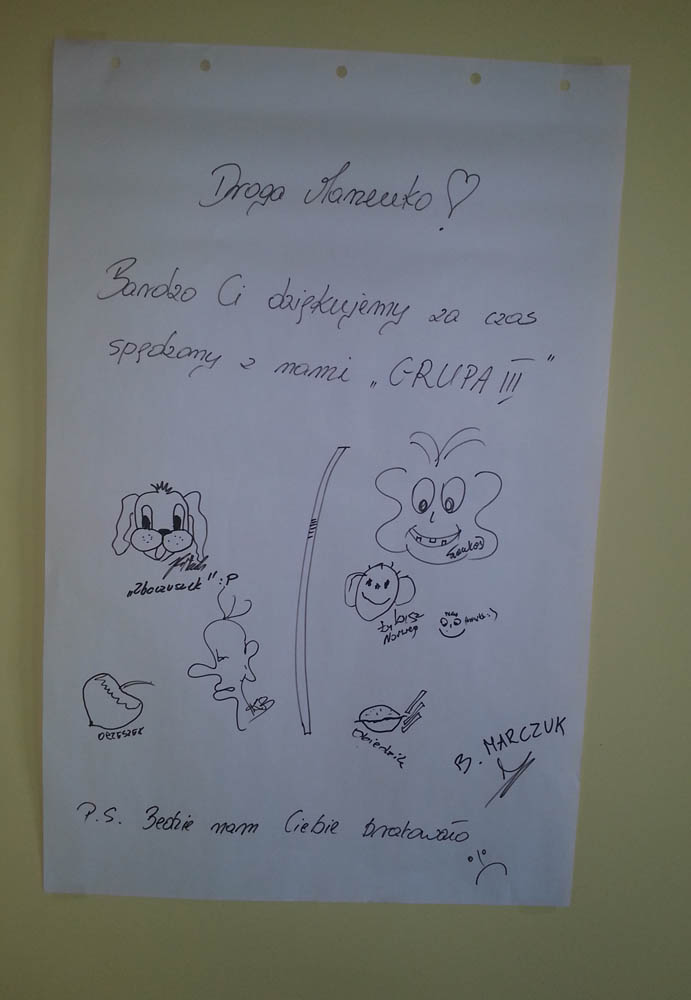 Droga Marzenko!
Bardzo Ci dziękujemy za czas
spędzony z nami „GRUPA III"
„Zboczuszek" :P
ORZESZEK
Norweg
Obiednik
B. MARCZUK
P.S. Będzie nam Ciebie brakowało